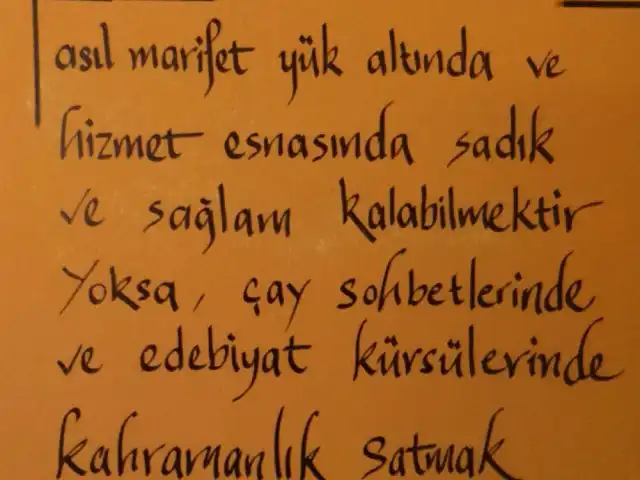 asıl marifet yük altında ve
hizmet esnasında sadık
ve sağlam kalabilmektir
Yoksa, çay sohbetlerinde
ve edebiyat kürsülerinde
kahramanlık satmak